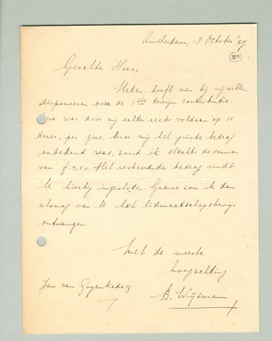 Amsterdam, 18 October '47
Geachte Heer,
Heden heeft men bij mij willen
disponeren over de 1ste termijn contributie.
Deze was door mij echter reeds voldaan op 11
dezer, per giro. Daar mij het juiste bedrag
onbekend was, zond ik slechts de somma
van f 2,50. Het resterende bedrag vindt
U hierbij ingesloten. Gaarne zou ik dan
alsnog van U het lidmaatschapsbewijs
ontvangen.
Met de meeste
hoogachting
B. Wijsman
Jan van Goyenkade